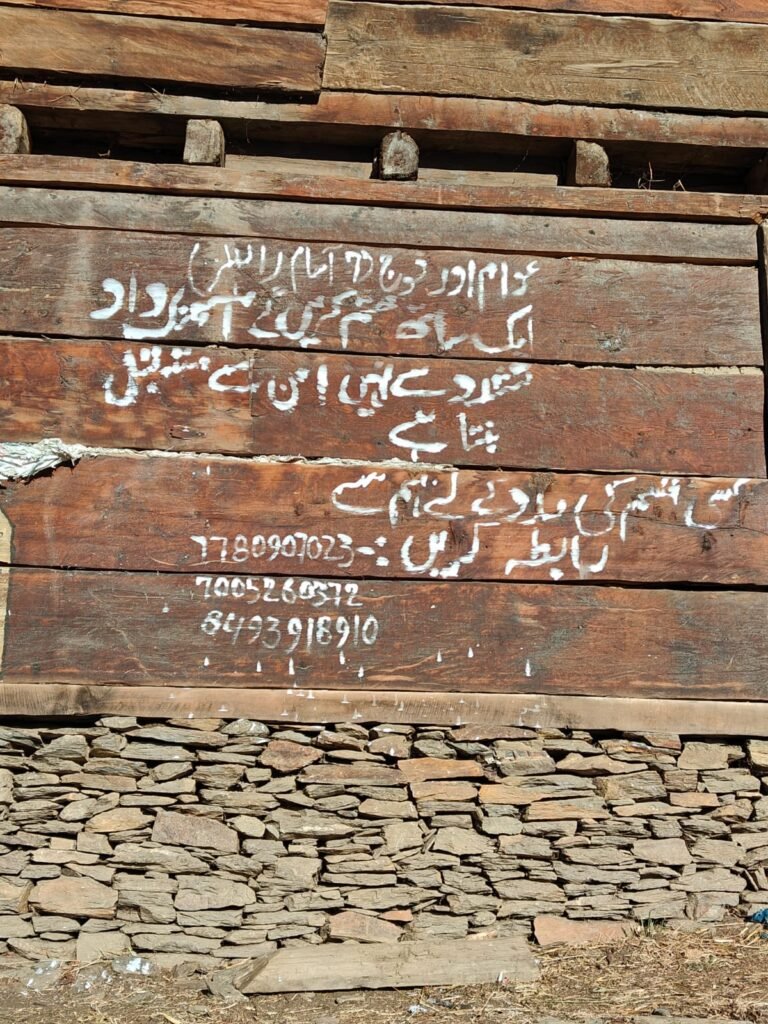 عوام اور فوج (7 آسام رائفلز)
ایک ساتھ ختم کریں گے
تشدد سے نہیں امن سے مستقبل
بنتا ہے
کسی قسم کی مدد کے لئے ہم سے
رابطہ کریں :- 7780907023
7005260372
8493918910